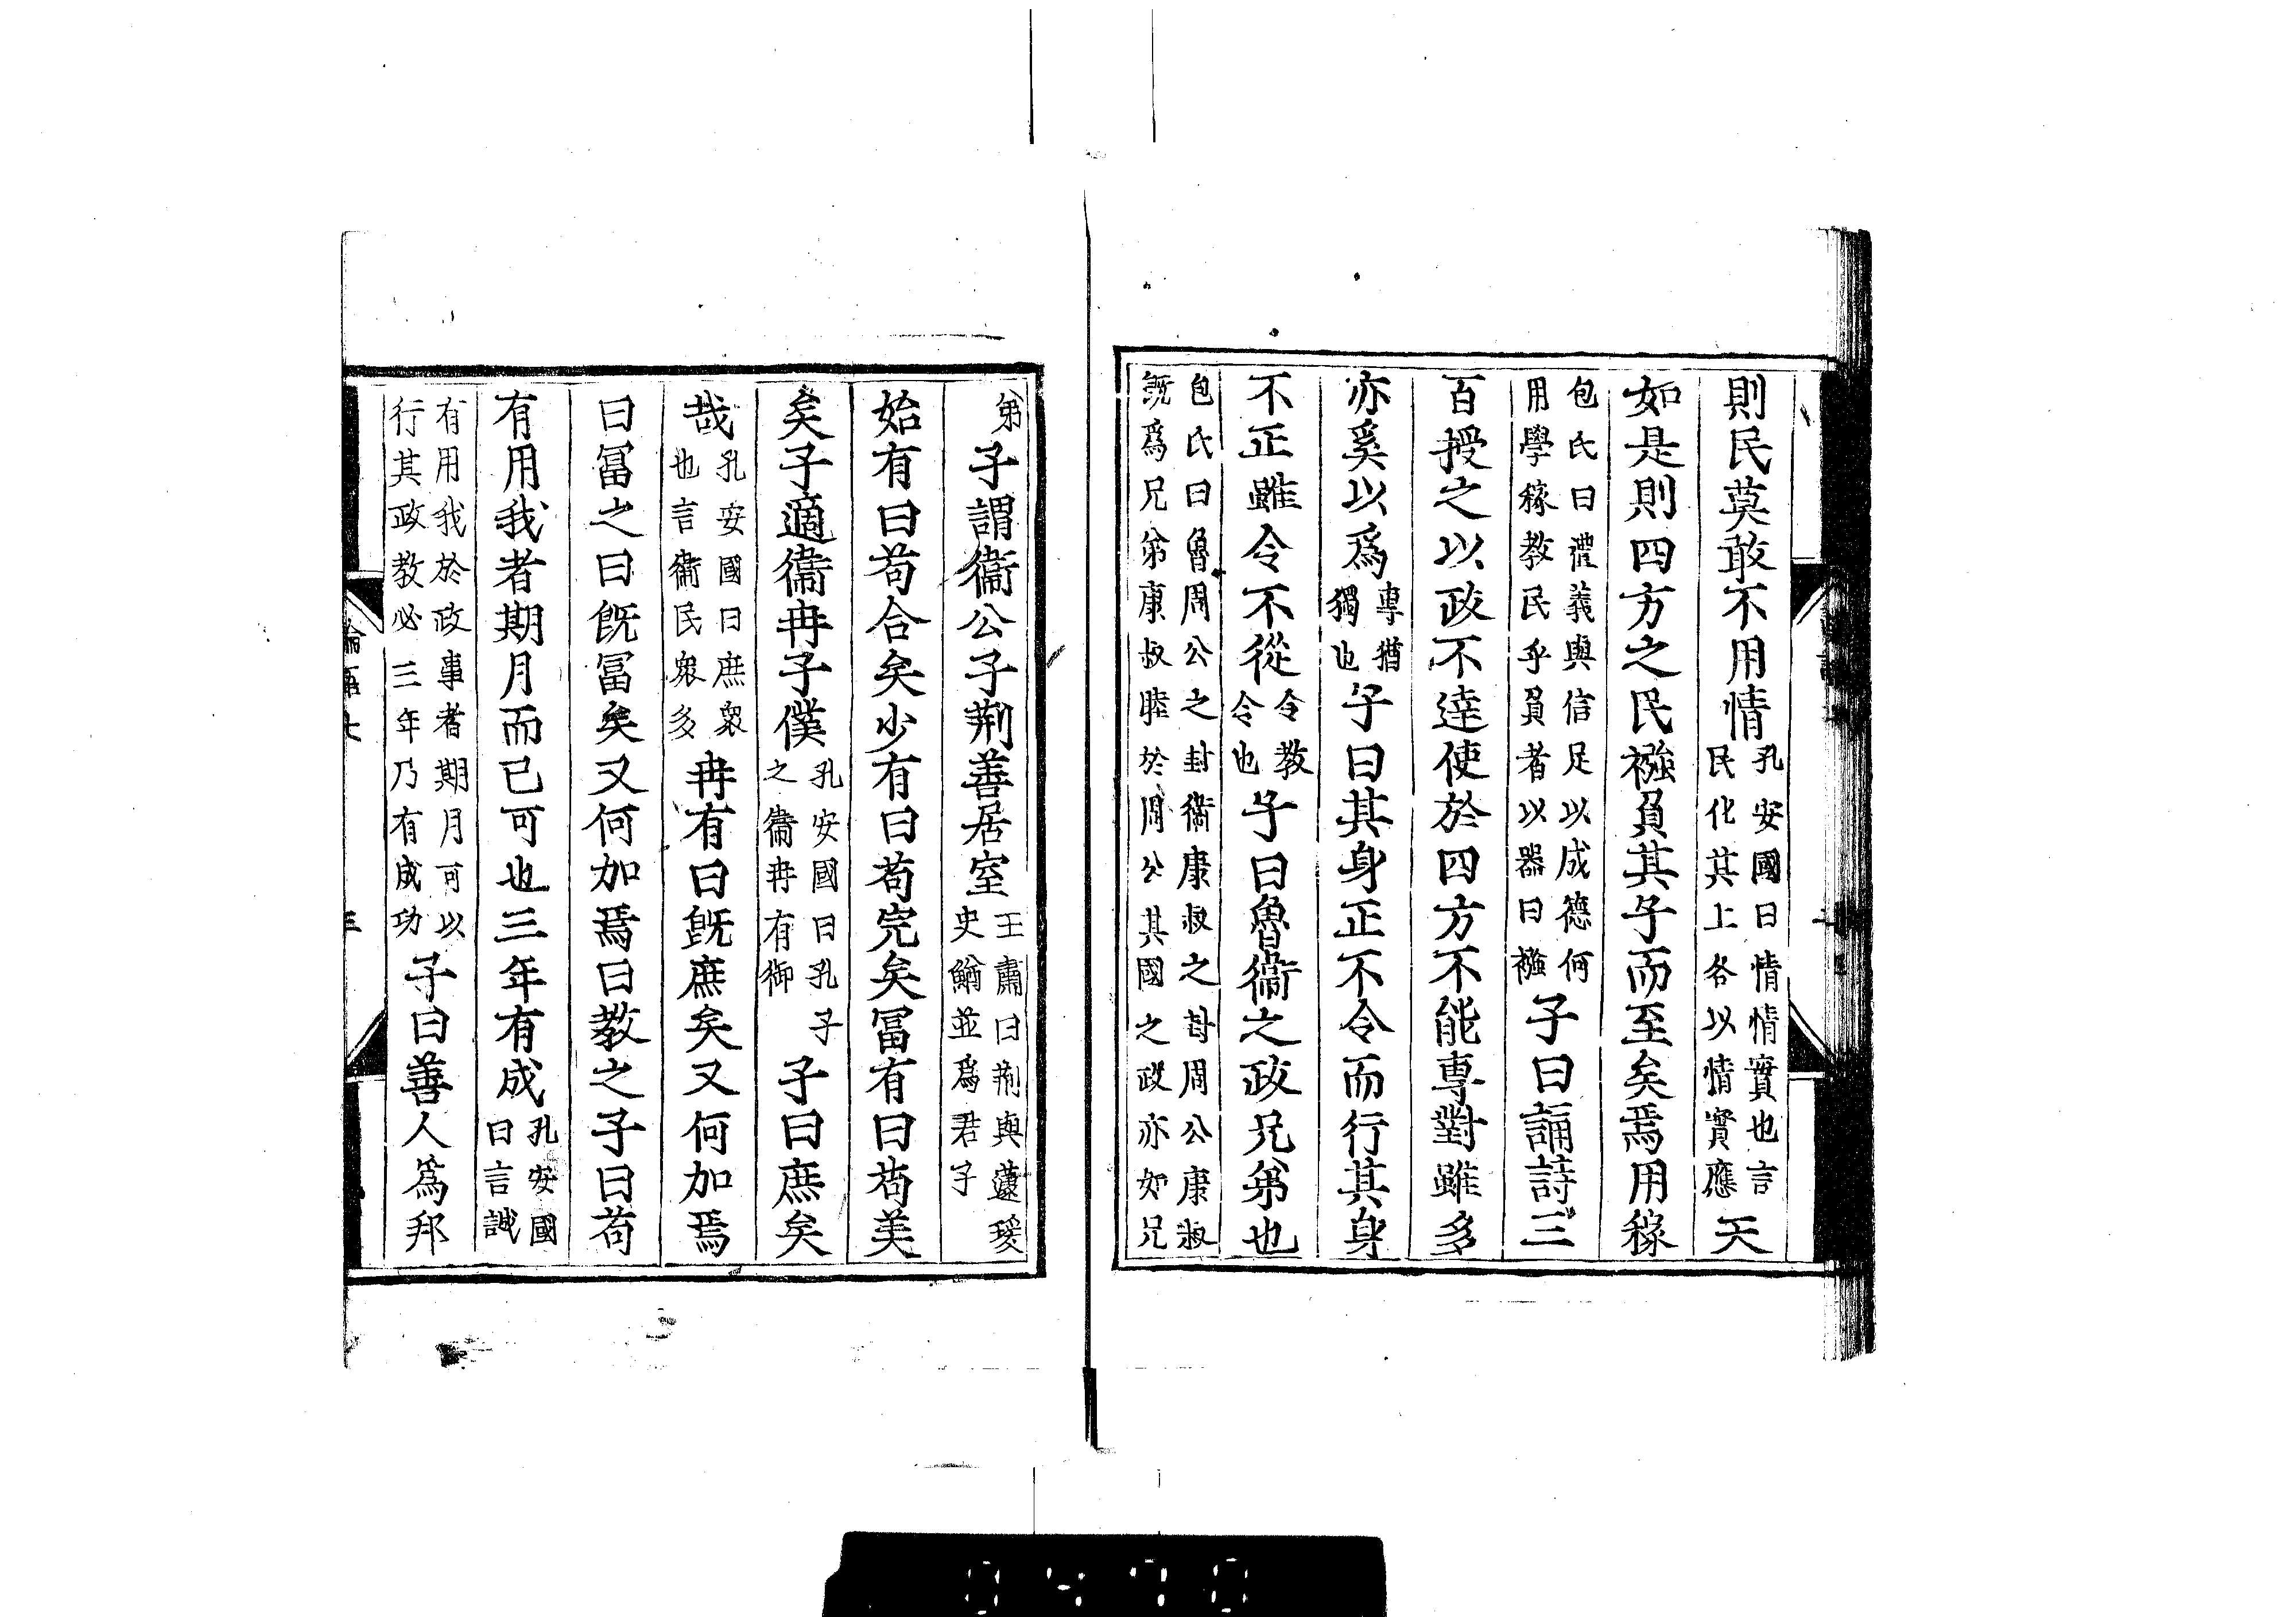 則民莫敢不用情孔安國曰情情實也言民化其上各以情實應夫
如是則四方之民襁負其子而至矣焉用稼
包氏曰禮義與信足以成德何用學稼教民乎負者以器曰襁子曰誦詩三
百授之以政不達使於四方不能專對雖多
亦奚以爲專猶獨也子曰其身正不令而行其身
不正雖令不從令教令也子曰魯衞之政兄弟也
包氏曰魯周公之封衞康叔之封周公康叔既爲兄弟康叔睦於周公其國之政亦如兄
弟子謂衞公子荆善居室王肅曰荆與蘧瑗史鰌並爲君子
始有曰苟合矣少有曰苟完矣冨有曰苟美
矣子適衞冉子僕孔安國曰孔子之衞冉有御子曰庶矣
哉孔安國曰庶衆也言衞民衆多冉有曰旣庶矣又何加焉
曰冨之曰旣冨矣又何加焉曰教之子曰苟
有用我者期月而已可也三年有成孔安國曰言誠
有用我於政事者期月可以行其政教必三年乃有成功子曰善人爲邦
論語七
三
0470